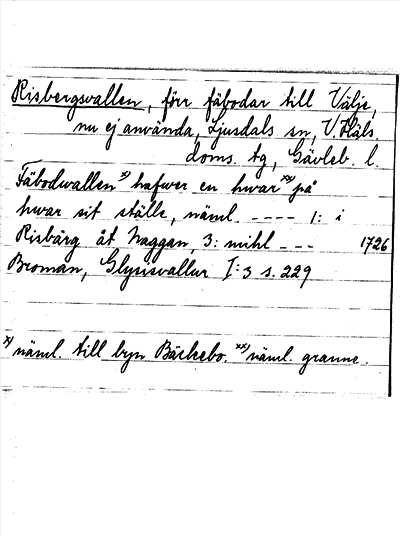 Risbergsvallen, förr fäbodar till Välje,
nu ej använda, Ljusdals sn, V. Häls.
doms. tg, Gävleb. l.
Fäbodwallen x) hafwer en hwar xx) på
hwar sit ställe, näml. ---- 1: i
Risbärg åt Naggan, 3: mihl --- 1726
Broman, Glysisvallur I: 3 s. 229
x) näml. till byn Bäckebo. xx) näml. granne.